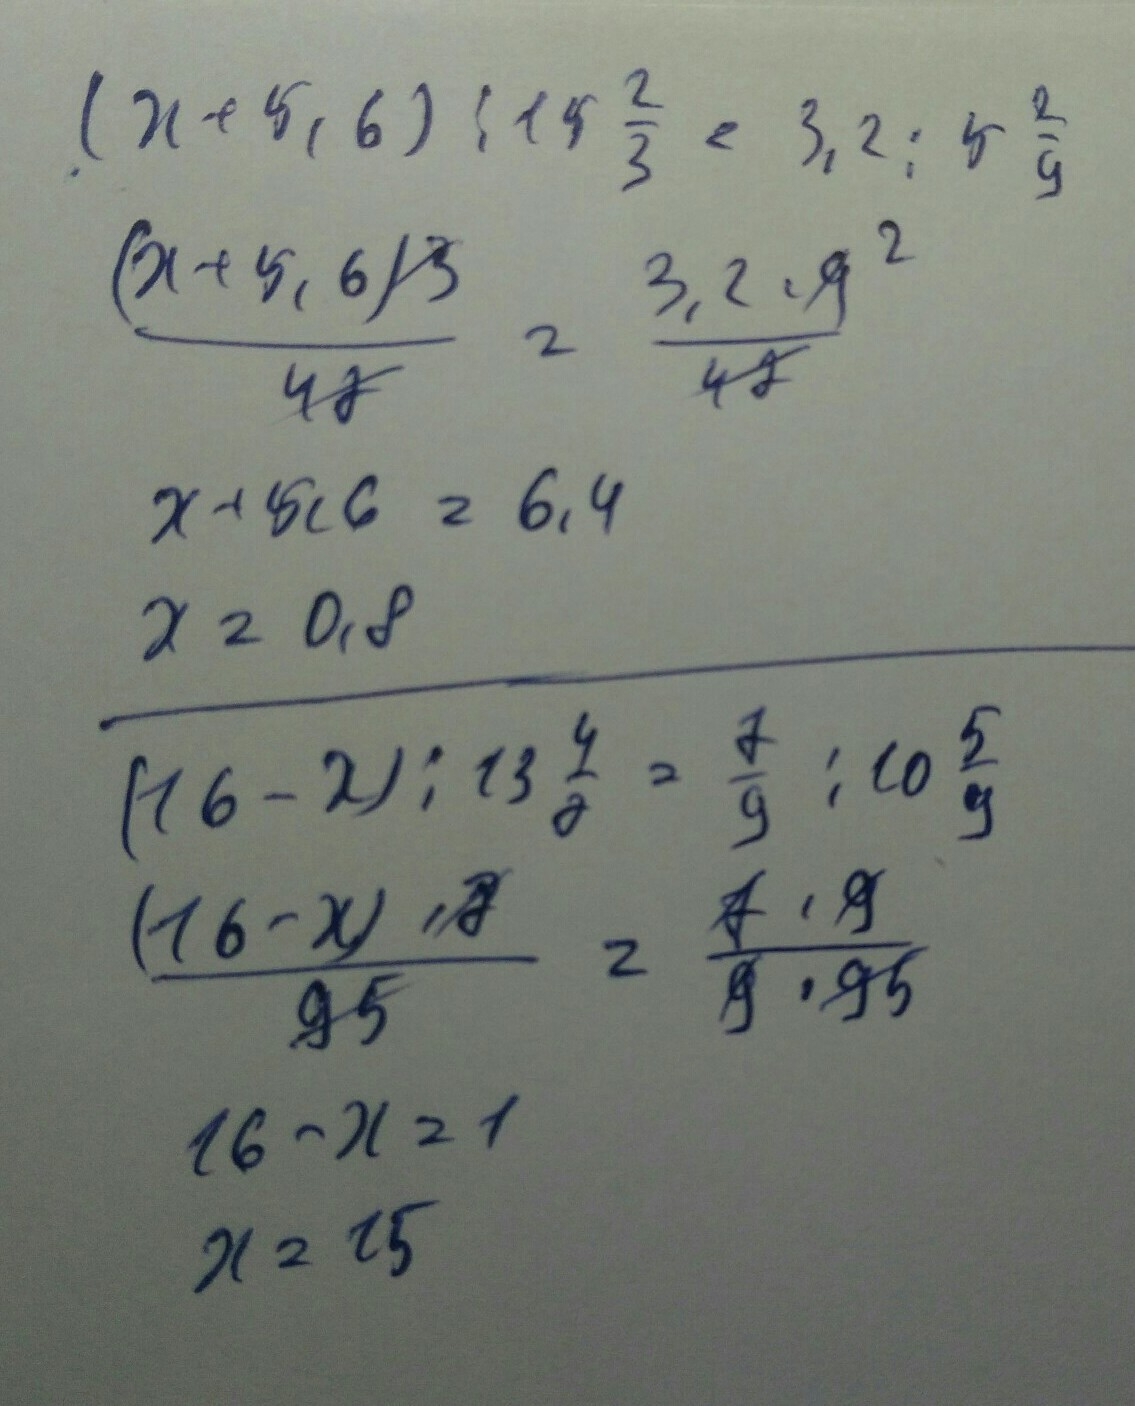 (x+5,6):15 2/3 = 3,2:5 2/9
(x+5,6)3/47 = 3,2·9 2/47
x+5,6 = 6,4
x = 0,8
(16-x):13 4/7 = 7/9:10 5/9
(16-x)·7/95 = 7·9/9·95
16-x=1
x=15